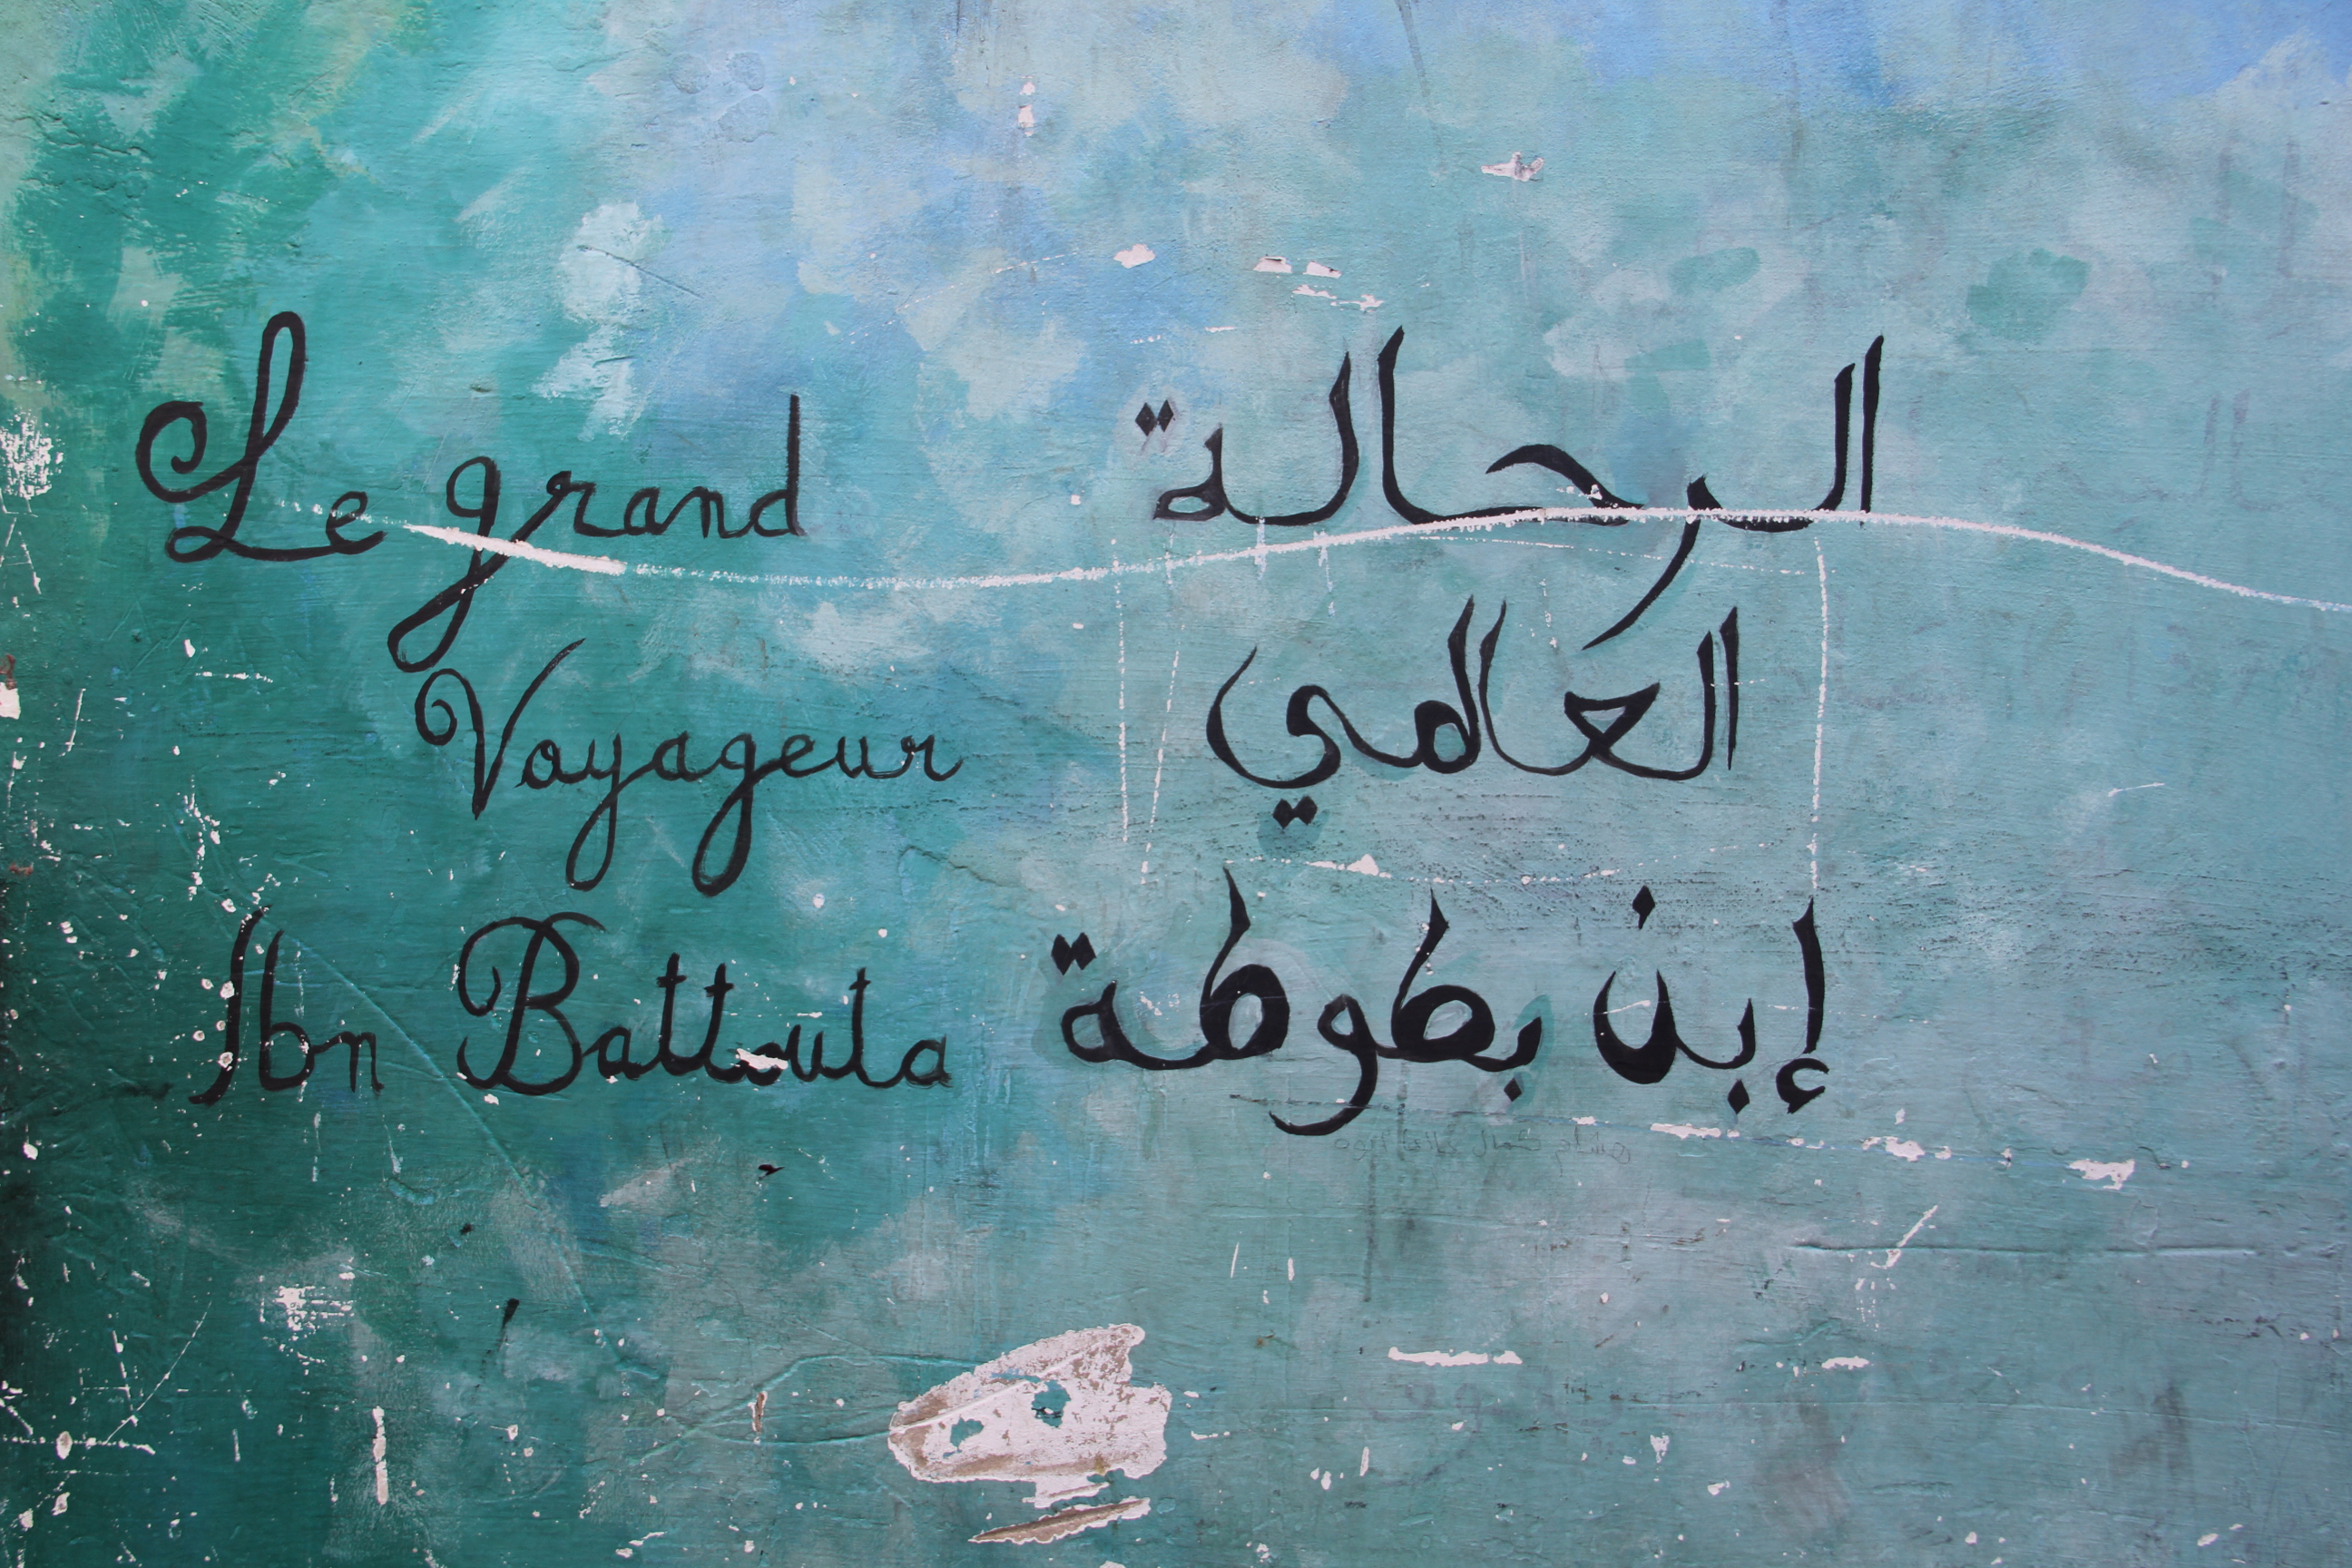 Le grand
Voyageur
Ibn Battouta
الرحالة
العالمي
إبن بطوطة